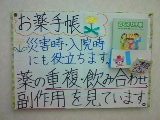 お薬手帳
災害時・入院時
にも役立ちます
薬の重複・飲み合わせ
副作用を見ています。